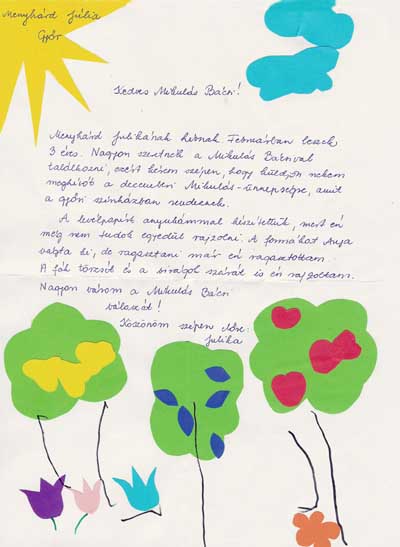 Menyhárd Júlia
Győr
Kedves Mikulás Bácsi!
Menyhárd Julikának hívnak. Februárban leszek
3 éves. Nagyon szeretnék a Mikulás Bácsival
találkozni, ezért kérem szépen, hogy küldjön nekem
meghívót a decemberi Mikulás-ünnepségre, amit
a győri színházban rendeznek.
A levélpapírt anyukámmal készítettük, mert én
még nem tudok egyedül rajzolni. A formákat Anya
vágta ki, de ragasztani már én ragasztottam.
A fák törzsét és a virágok szárát is én rajzoltam.
Nagyon várom a Mikulás Bácsi
válaszát!
Köszönöm szépen
Julika